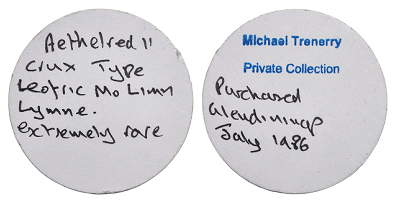 Aethelred II
Crux Type
Leofric Mo Limn
Lymne.
extremely rare
Michael Trenerry
Private Collection
Purchased
Glendinings
July 1986